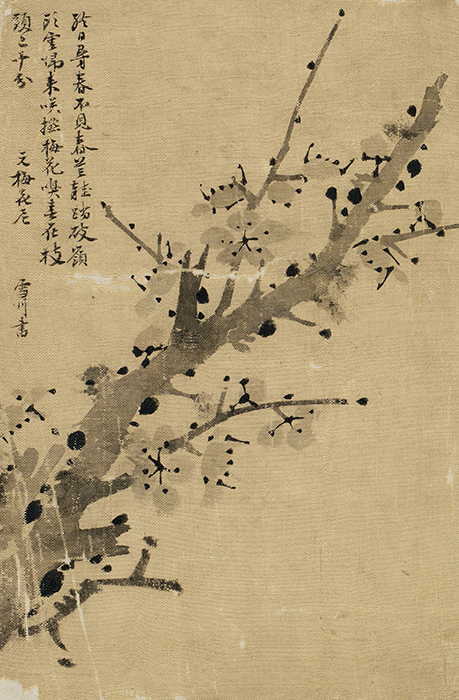 終日尋春不見春芒鞋踏破嶺
頭雲歸來笑撚梅花嗅春在枝
頭已十分
元梅花尼
雪川書